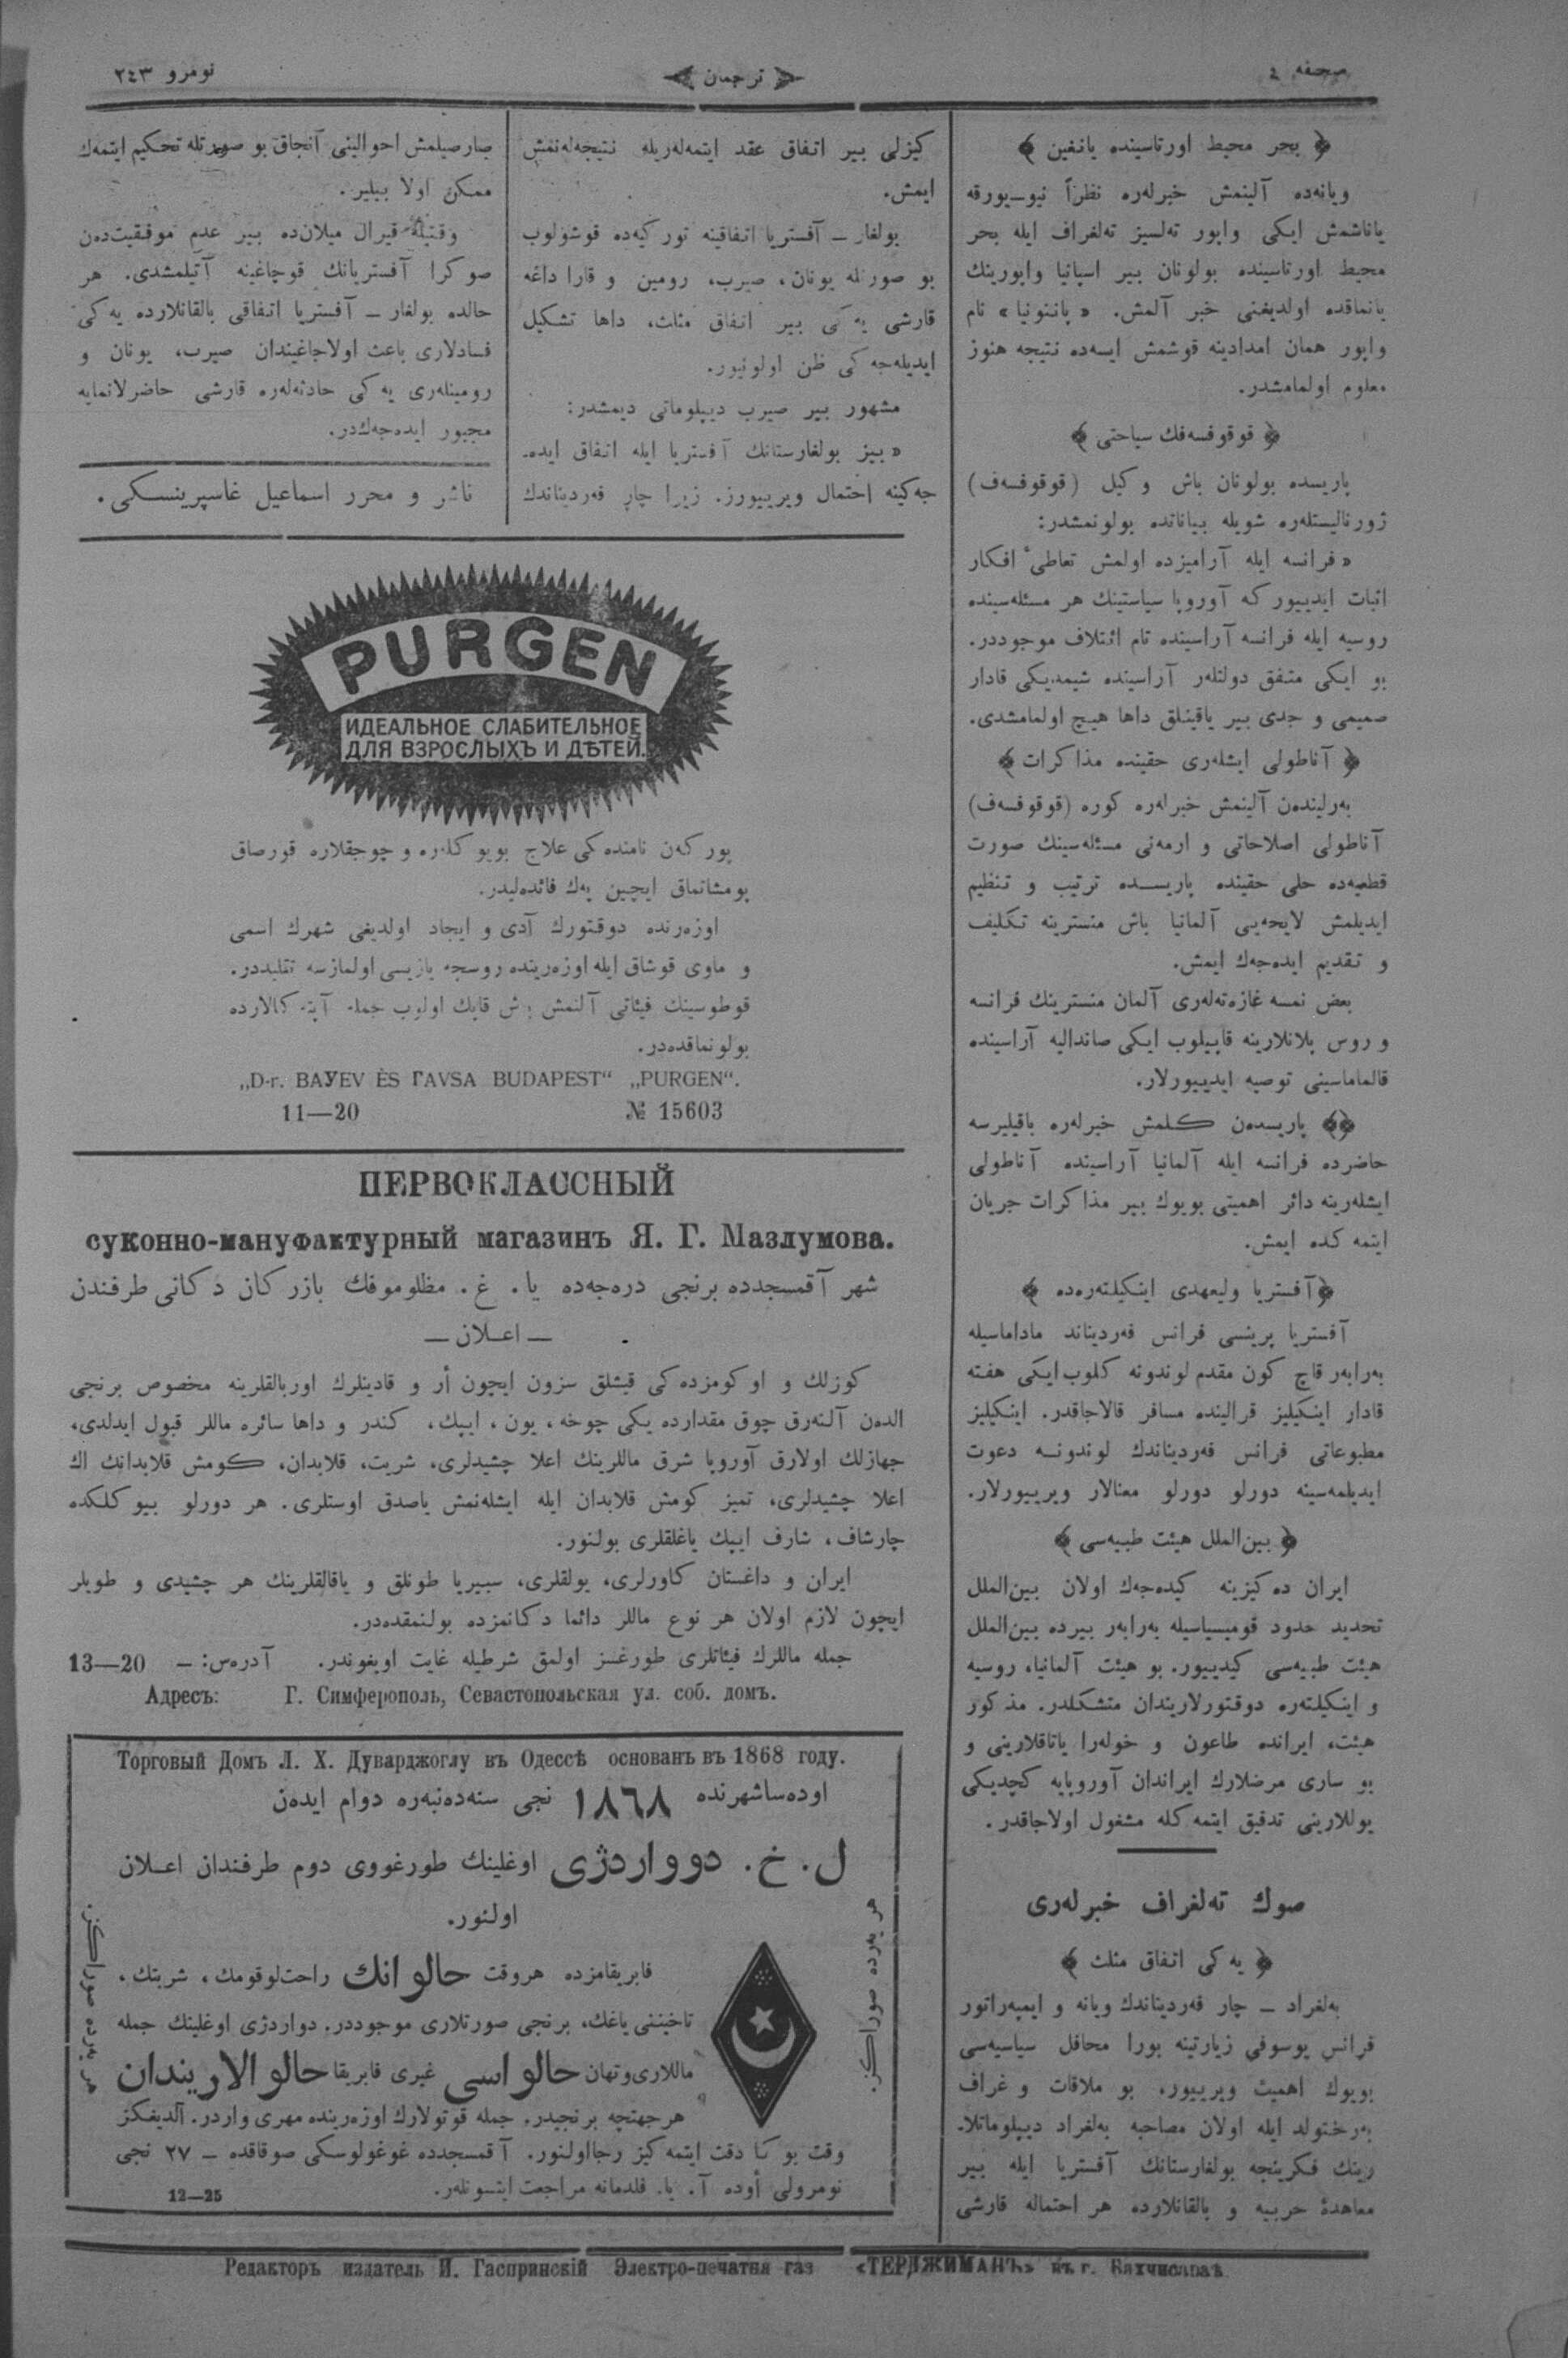 صحیفه ٤
﴿ ترجمان ﴾
نومرو ٢٤٣
﴿ بحر محیط اورتاسینده یانغین ﴾
ویانه‌ده آلینمش خبرلەره نظراً نیو-یورقه
یاناشمش ایکی واپور تەلسیز تەلغراف ایله بحر
محیط اورتاسینده بولونان بیر اسپانیا واپورینك
یانماقده اولدیغنی خبر آلمش. «پاننونیا» نام
واپور همان امدادینه قوشمش ایسه‌ده نتیجه هنوز
معلوم اولمامشدر.
﴿ قوقوفسەفك سیاحتی ﴾
پاریسده بولونان باش وکیل (قوقوفسەف)
ژورنالیستلەره شویله بیاناتده بولونمشدر:
«فرانسه ایله آرامیزده اولمش تعاطیٔ افکار
اثبات ایدییور که آوروپا سیاستینك هر مسئله‌سینده
روسیه ایله فرانسه آراسینده تام ائتلاف موجوددر.
بو ایکی متفق دولتلەر آراسینده شیمدیکی قادار
صمیمی و جدی بیر یاقینلق داها هیچ اولمامشدی.
﴿ آناطولی ایشلەری حقینده مذاکرات ﴾
بەرلیندەن آلینمش خبرلەره کوره (قوقوفسەف)
آناطولی اصلاحاتی و ارمەنی مسئله‌سینك صورت
قطعیه‌ده حلی حقینده پاریسده ترتیب و تنظیم
ایدیلمش لایحه‌یی آلمانیا باش منسترینه تکلیف
و تقدیم ایده‌جەك ایمش.
بعض نمسه غازەتەلەری آلمان منسترینك فرانسه
و روس پلانلارینه قاپیلوب ایکی صاندالیه آراسینده
قالماماسینی توصیه ایدییورلار.
﴿﴾ پاریسدەن کلمش خبرلەره باقیلیرسه
حاضرده فرانسه ایله آلمانیا آراسینده آناطولی
ایشلەرینه دائر اهمیتی بویوك بیر مذاکرات جریان
ایتمه‌کده ایمش.
﴿ آفستریا ولیعهدی اینکیلتەره‌ده ﴾
آفستریا پرینسی فرانس فەردیناند ماداماسیله
بەرابەر قاچ کون مقدم لوندونه کلوب ایکی هفته
قادار اینکیلیز قرالینده مسافر قالاجاقدر. اینکیلیز
مطبوعاتی فرانس فەردیناندك لوندونه دعوت
ایدیلمه‌سینه دورلو دورلو معنالار ویرییورلار.
﴿ بین‌الملل هیئت طبیه‌سی ﴾
ایران ده‌کیزینه کیده‌جەك اولان بین‌الملل
تحدید حدود قومیسیاسیله بەرابەر بیرده بین‌الملل
هیئت طبیه‌سی کیدییور. بو هیئت آلمانیا، روسیه
و اینکیلتەره دوقتورلاریندان متشکلدر. مذکور
هیئت، ایرانده طاعون و خولەرا یاتاقلارینی و
بو ساری مرضلارك ایراندان آوروپایه کچدیکی
یوللارینی تدقیق ایتمه‌کله مشغول اولاجاقدر.
صوك تەلغراف خبرلەری
﴿ یەکی اتفاق مثلث ﴾
بەلغراد — چار فەردیناندك ویانه و ایمپەراتور
فرانس یوسوفی زیارتینه بورا محافل سیاسیه‌سی
بویوك اهمیت ویرییور. بو ملاقات و غراف
بەرختولد ایله اولان مصاحبه بەلغراد دیپلوماتلا-
رینك فکرینجه بولغارستانك آفستریا ایله بیر
معاهدهٔ حربیه و بالقانلارده هر احتماله قارشی
کیزلی بیر اتفاق عقد ایتمه‌لەریله نتیجه‌لەنمش
ایمش.
بولغار — آفستریا اتفاقینه تورکیه‌ده قوشولوب
بو صورتله یونان، صیرب، رومین و قارا داغه
قارشی یەکی بیر اتفاق مثلث، داها تشکیل
ایدیله‌جەکی ظن اولونیور.
مشهور بیر صیرب دیپلوماتی دیمشدر:
«بیز بولغارستانك آفستریا ایله اتفاق ایده-
جەکینه احتمال ویرییورز. زیرا چار فەردیناندك
صارصیلمش احوالینی آنجاق بو صورتله تحکیم ایتمەك
ممکن اولا بیلیر.
وقتیله قیرال میلان‌ده بیر عدم موفقیت‌دەن
صوکرا آفستریانك قوجاغینه آتیلمشدی. هر
حالده بولغار — آفستریا اتفاقی بالقانلارده یەکی
فسادلاری باعث اولاجاغیندان صیرب، یونان و
رومینلەری یەکی حادثه‌لەره قارشی حاضرلانمایه
مجبور ایده‌جەكدر.
ناشر و محرر اسماعیل غاسپرینسکی.
PURGEN
ИДЕАЛЬНОЕ СЛАБИТЕЛЬНОЕ
ДЛЯ ВЗРОСЛЫХЪ И ДѢТЕЙ.
پورکەن نامنده‌کی علاج بویوکلەره و چوجقلاره قورصاق
یومشاتماق ایچین پەك فائده‌لیدر.
اوزەرنده دوقتورك آدی و ایجاد اولدیغی شهرك اسمی
و ماوی قوشاق ایله اوزەرینده روسجه یازیسی اولمازسه تقلیددر.
قوطوسینك فیئاتی آلتمش بش قاپك اولوب جمله آپته‌کالارده
بولونماقده‌در.
„D-r. BAYEV ÈS TAVSA BUDAPEST“ „PURGEN“.
11—20 № 15603
ПЕРВОКЛАССНЫЙ
суконно-мануфактурный магазинъ Я. Г. Мазлумова.
شهر آقمسجدده برنجی درەجه‌ده یا. غ. مظلوموفك بازرکان دکانی طرفندن
— اعلان —
کوزلك و اوکومزده‌کی قیشلق سزون ایچون أر و قادینلرك اوربالقلرینه مخصوص برنجی
الدەن آلنەرق چوق مقدارده یکی چوخه، یون، ایپك، کندر و داها سائره ماللر قبول ایدلدی،
جهازلك اولارق آوروپا شرق ماللرینك اعلا چشیدلری، شریت، قلابدان، کومش قلابدانك اك
اعلا چشیدلری، تمیز کومش قلابدان ایله ایشله‌نمش یاصدق اوستلری. هر دورلو بیوکلکده
چارشاف، شارف ایپك یاغلقلری بولنور.
ایران و داغستان کاورلری، یولقلری، سیبریا طونلق و یاقالقلرینك هر چشیدی و طویلر
ایچون لازم اولان هر نوع ماللر دائما دکانمزده بولنمقده‌در.
جمله ماللرك فیئاتلری طورغسز اولمق شرطیله غایت اویغوندر. آدرەس: — 13—20
Адресъ: Г. Симферополь, Севастопольская ул. соб. домъ.
Торговый Домъ Л. Х. Дуварджоглу въ Одессѣ основанъ въ 1868 году.
اودەسا شهرنده ١٨٦٨ نجی سنه‌دەنبەره دوام ایدەن
ل. خ. دوواردژی اوغلینك طورغووی دوم طرفندان اعلان
اولنور.
هر یەرده صوراکز.
فابریقامزده هروقت حالوانك راحت‌لوقومك، شربتك،
تاخیننی یاغك، برنجی صورتلاری موجوددر. دواردژی اوغلینك جمله
ماللاری وتهان حالواسی غیری فابریقا حالوالاریندان
هرجهتچه برنجیدر. جمله قوتولارك اوزەرینده مهری واردر. آلدیغکز
وقت بوکا دقت ایتمه‌کیز رجااولنور. آقمسجدده غوغولوسکی صوقاقده — ٢٧ نجی
نومرولی أوده آ. یا. قلدمانه مراجعت ایتسونلەر.
12—25
هر یەرده صوراکز.
Редакторъ издатель И. Гаспринскій Электро-печатня газ «ТЕРДЖИМАНЪ» въ г. Бахчисараѣ